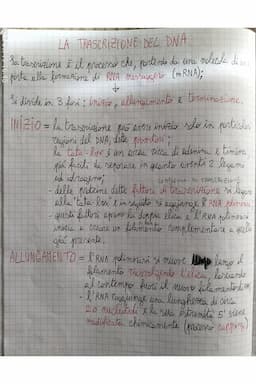 LA TRASCRIZIONE DEL DNA
La trascrizione è il processo che, partendo da una molecola di
porta alla formazione di RNA messaggero (mRNA);
↓
Si divide in 3 fasi: inizio, allungamento e terminazione.
INIZIO = la trascrizione può avere inizio solo in particolari
regioni del DNA, dette promotori;
la tata-box è un' area ricca di adenina e timina
più facili da separare in quanto aventi 2 legami
ad idrogeno;
- delle proteine dette fattori di trascrizione si legano
alla "tata-box" e in seguito si aggiunge l' RNA polimerasi
- questi fattori aprono la doppia elica e l'RNA polimerasi
inizia a creare un filamento complementare a quello
già presente.
ALLUNGAMENTO = l'RNA polimerasi si muove lungo il
filamento riavvolgendo l'elica, lasciando
al contempo fuori il nuovo filamento di
- l'RNA raggiunge una lunghezza di circa
20 nucleotidi e la sua estremità 5' viene
modificata chimicamente (processo capping)